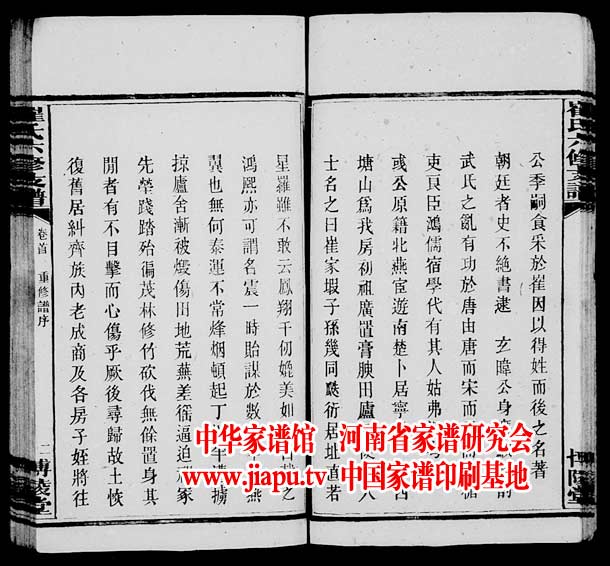 崔氏六修支譜
公季嗣食采於崔因以得姓而後之名著
朝廷者史不絕書逮 玄暐公身
武氏之亂有功於唐由唐而宋而
吏良臣鴻儒宿學代有其人姑弗
或公原籍北燕宦遊南楚卜居寧
塘山為我房初祖廣置膏腴田廬 八
士名之曰崔家塅子孫幾同駿衍居址直若
博陵堂
星羅雖不敢云鳳翔千仞媲美如
鴻熙亦可謂名震一時貽謀於數 燕
翼也無何泰運不常烽烟頓起丁 年遭擄
掠廬舍漸被燬傷田地荒蕪差徭逼迫 家
先塋踐踏殆徧茂林修竹砍伐無餘置身其
間者有不目擊而心傷乎厥後尋歸故土恢
復舊居糾齊族內老成商及各房子姪將往
崔氏六修支譜
卷首 重修譜序 二
博陵堂
中华家谱馆 河南省家谱研究会
www.jiapu.tv 中国家谱印刷基地